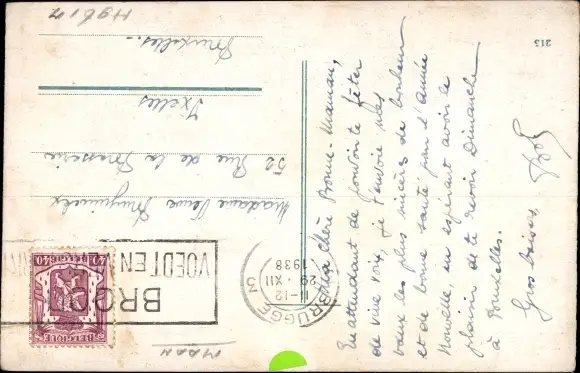 Ma chère Bonne-Maman,
En attendant de pouvoir te fêter
de vive voix, je t'envoie mes
vœux les plus sincères de bonheur
et de bonne santé pour l'année
Nouvelle, en espérant avoir le
plaisir de te revoir Dimanche
à Bruxelles.
Gros baisers,
Madame Veuve
52 Rue de la Brasserie
Ixelles
Bruxelles.-
213
BRUGGE 3
11-12
29·XII
1938
BROOD
VOEDT EN
40c
BELGIQUE